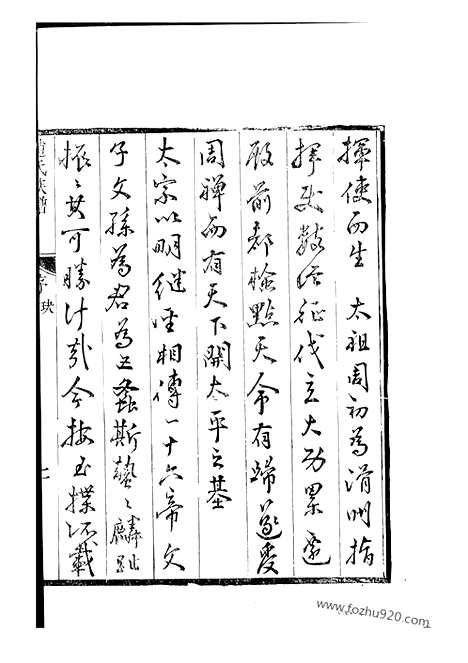 揮使而生 太祖周初為滑州指
揮使數從征伐立大功累遷
殿前都檢點天命有歸遂受
周禪而有天下開太平之基
太宗以明繼聖相傳一十六帝文
子文孫為君為王螽斯蟄〻麟趾
振〻其可勝計哉今按玉牒所載
趙氏族譜
序 玦
七
www.fozhu920.com